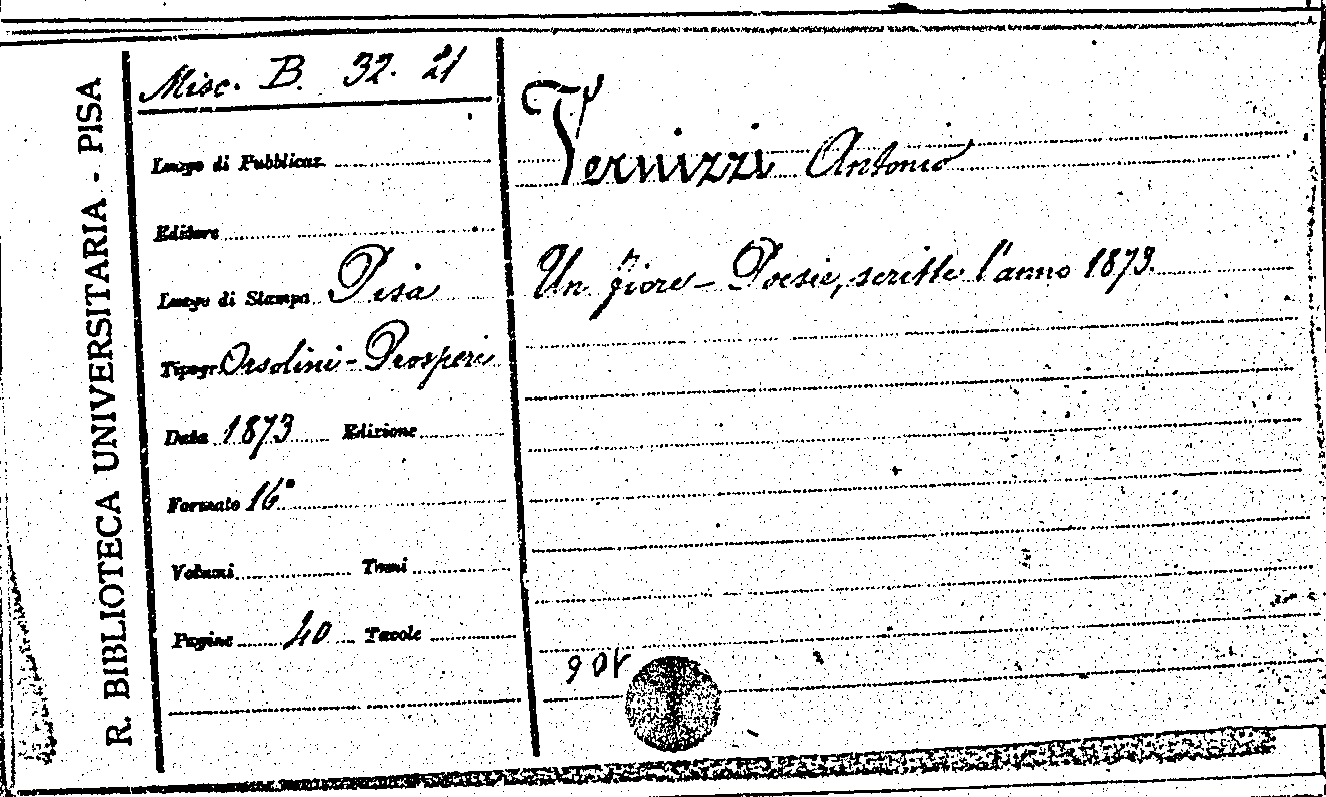 R. BIBLIOTECA UNIVERSITARIA - PISA
Misc. B. 32. 21
Luogo di Pubblicaz.
Editore
Luogo di Stampa Pisa
Tipogr. Orsolini - Prosperi
Data 1873 Edizione
Formato 16°
Volumi Tomi
Pagine 40 Tavole
Vernizzi Antonio
Un fiore - Poesie, scritte l'anno 1873.